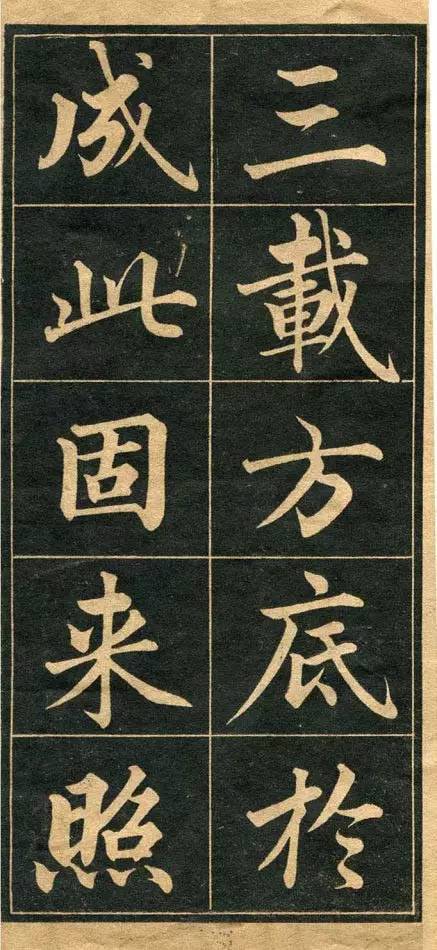 三載方底於
成此固来照